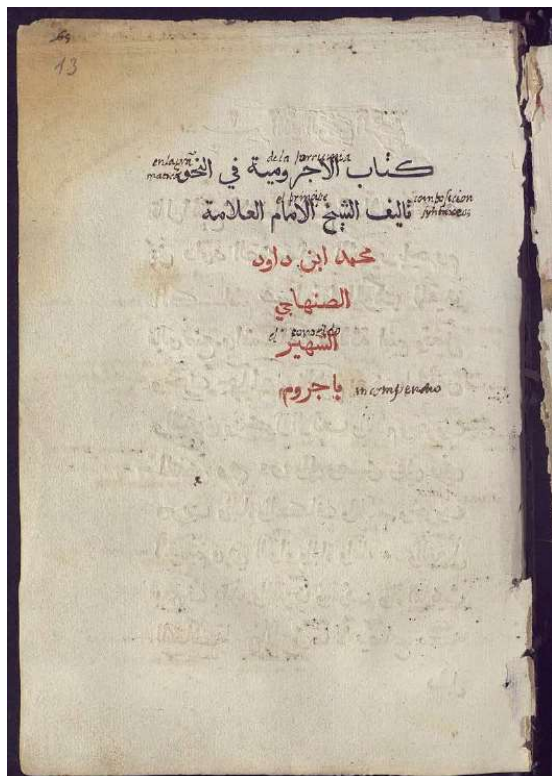 13
en la gra de la Jarrumia
matica
كتاب الاجرومية في النحو
el principe composicion
تاليف الشيخ الامام العلامة
محمد ابن داود
الصنهاجي
الشهير
باجروم in compendio